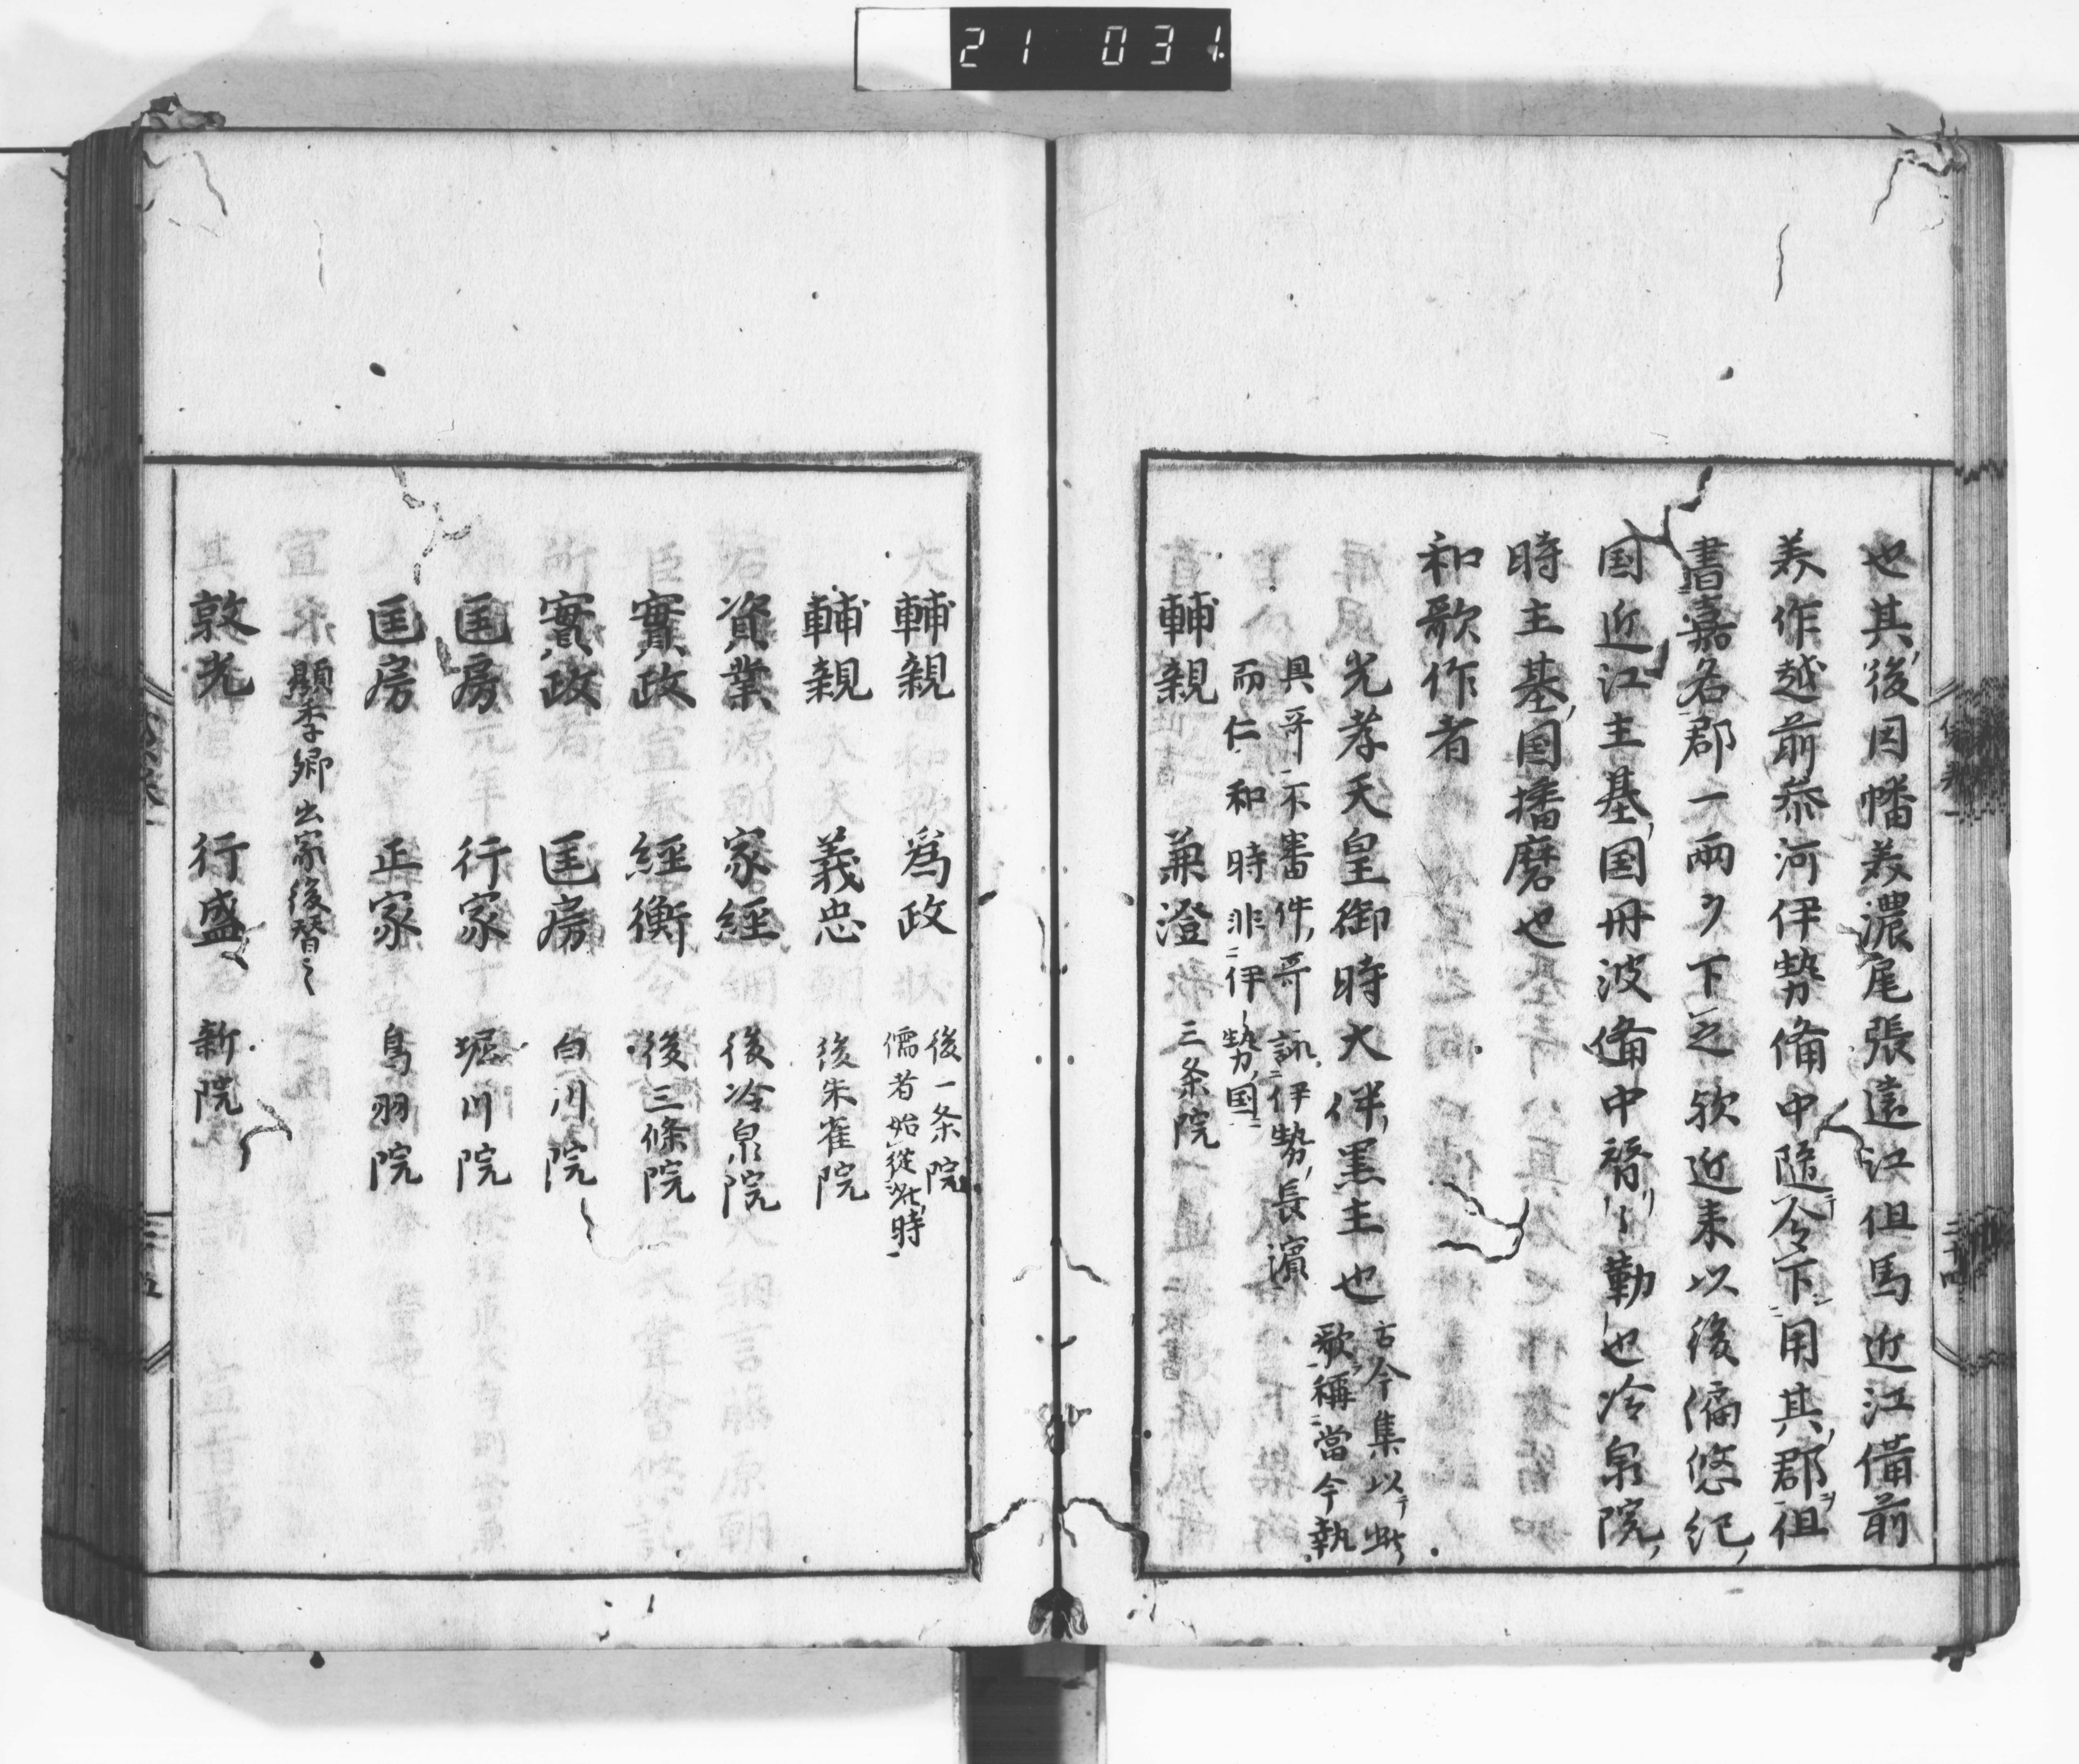 21 031
也其後因幡美濃尾張遠江但馬近江備前
美作越前叅河伊勢備中随テ令下用其郡徂
書嘉名郡一両ヲ下之欤近来以後偏悠紀
国近江主基国丹波備中替リ〻勤也冷泉院
時主基国播磨也
和歌作者
光孝天皇御時大伴黒主也
古今集以テ此
歌稱當今執
具哥不審件哥訴伊勢長濱
而仁和時非伊勢国
輔親 兼澄 三条院
輔親 為政 後一条院
儒者始從此時
輔親 義忠 後朱雀院
資業 家經 後冷泉院
實政 經衡 後三條院
實政 匡房 白川院
匡房 行家 堀川院
匡房 正家 鳥羽院
顯季卿出家後替之
敦光 行盛 新院